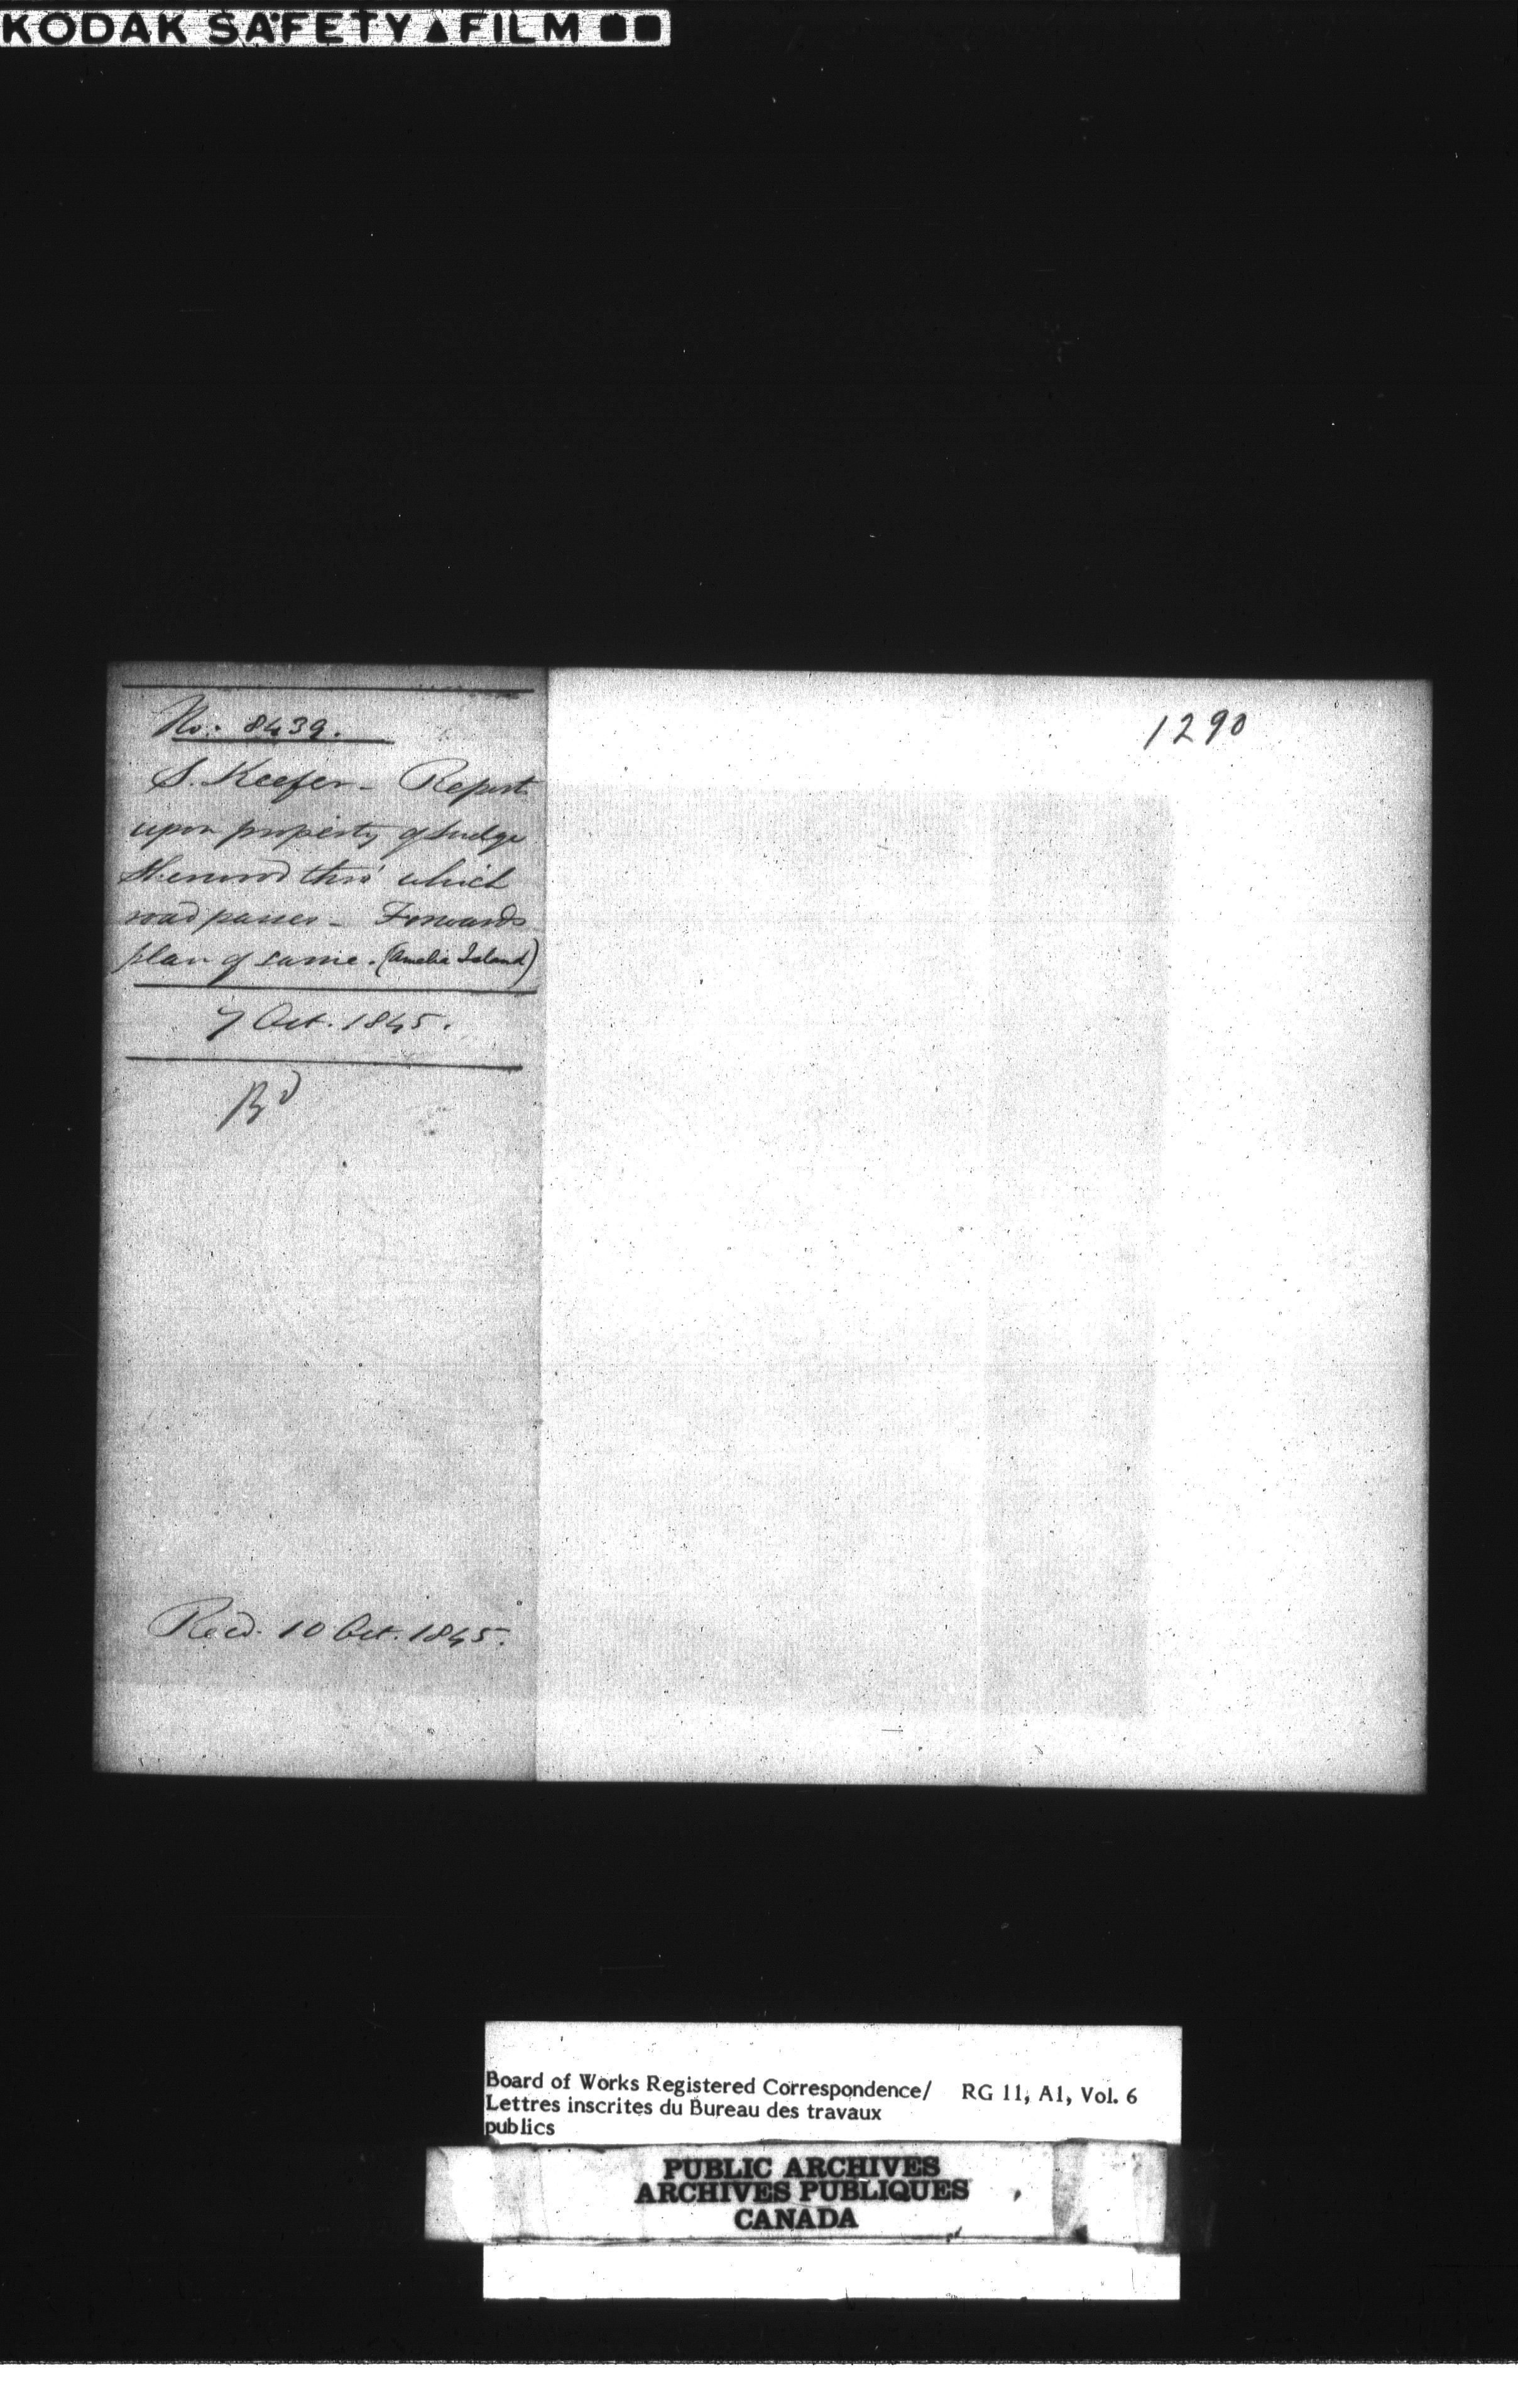 KODAK SAFETY ▲ FILM
1290
No: 8439.
S. Keefer - Report
upon property of Judge
Sherwood thro' which
road passes - Forwards
plan of same. (Amelia Island)
7 Oct. 1845.
Recd. 10 Oct. 1845.
Board of Works Registered Correspondence/ RG 11, A1, Vol. 6
Lettres inscrites du Bureau des travaux
publics
PUBLIC ARCHIVES
ARCHIVES PUBLIQUES
CANADA